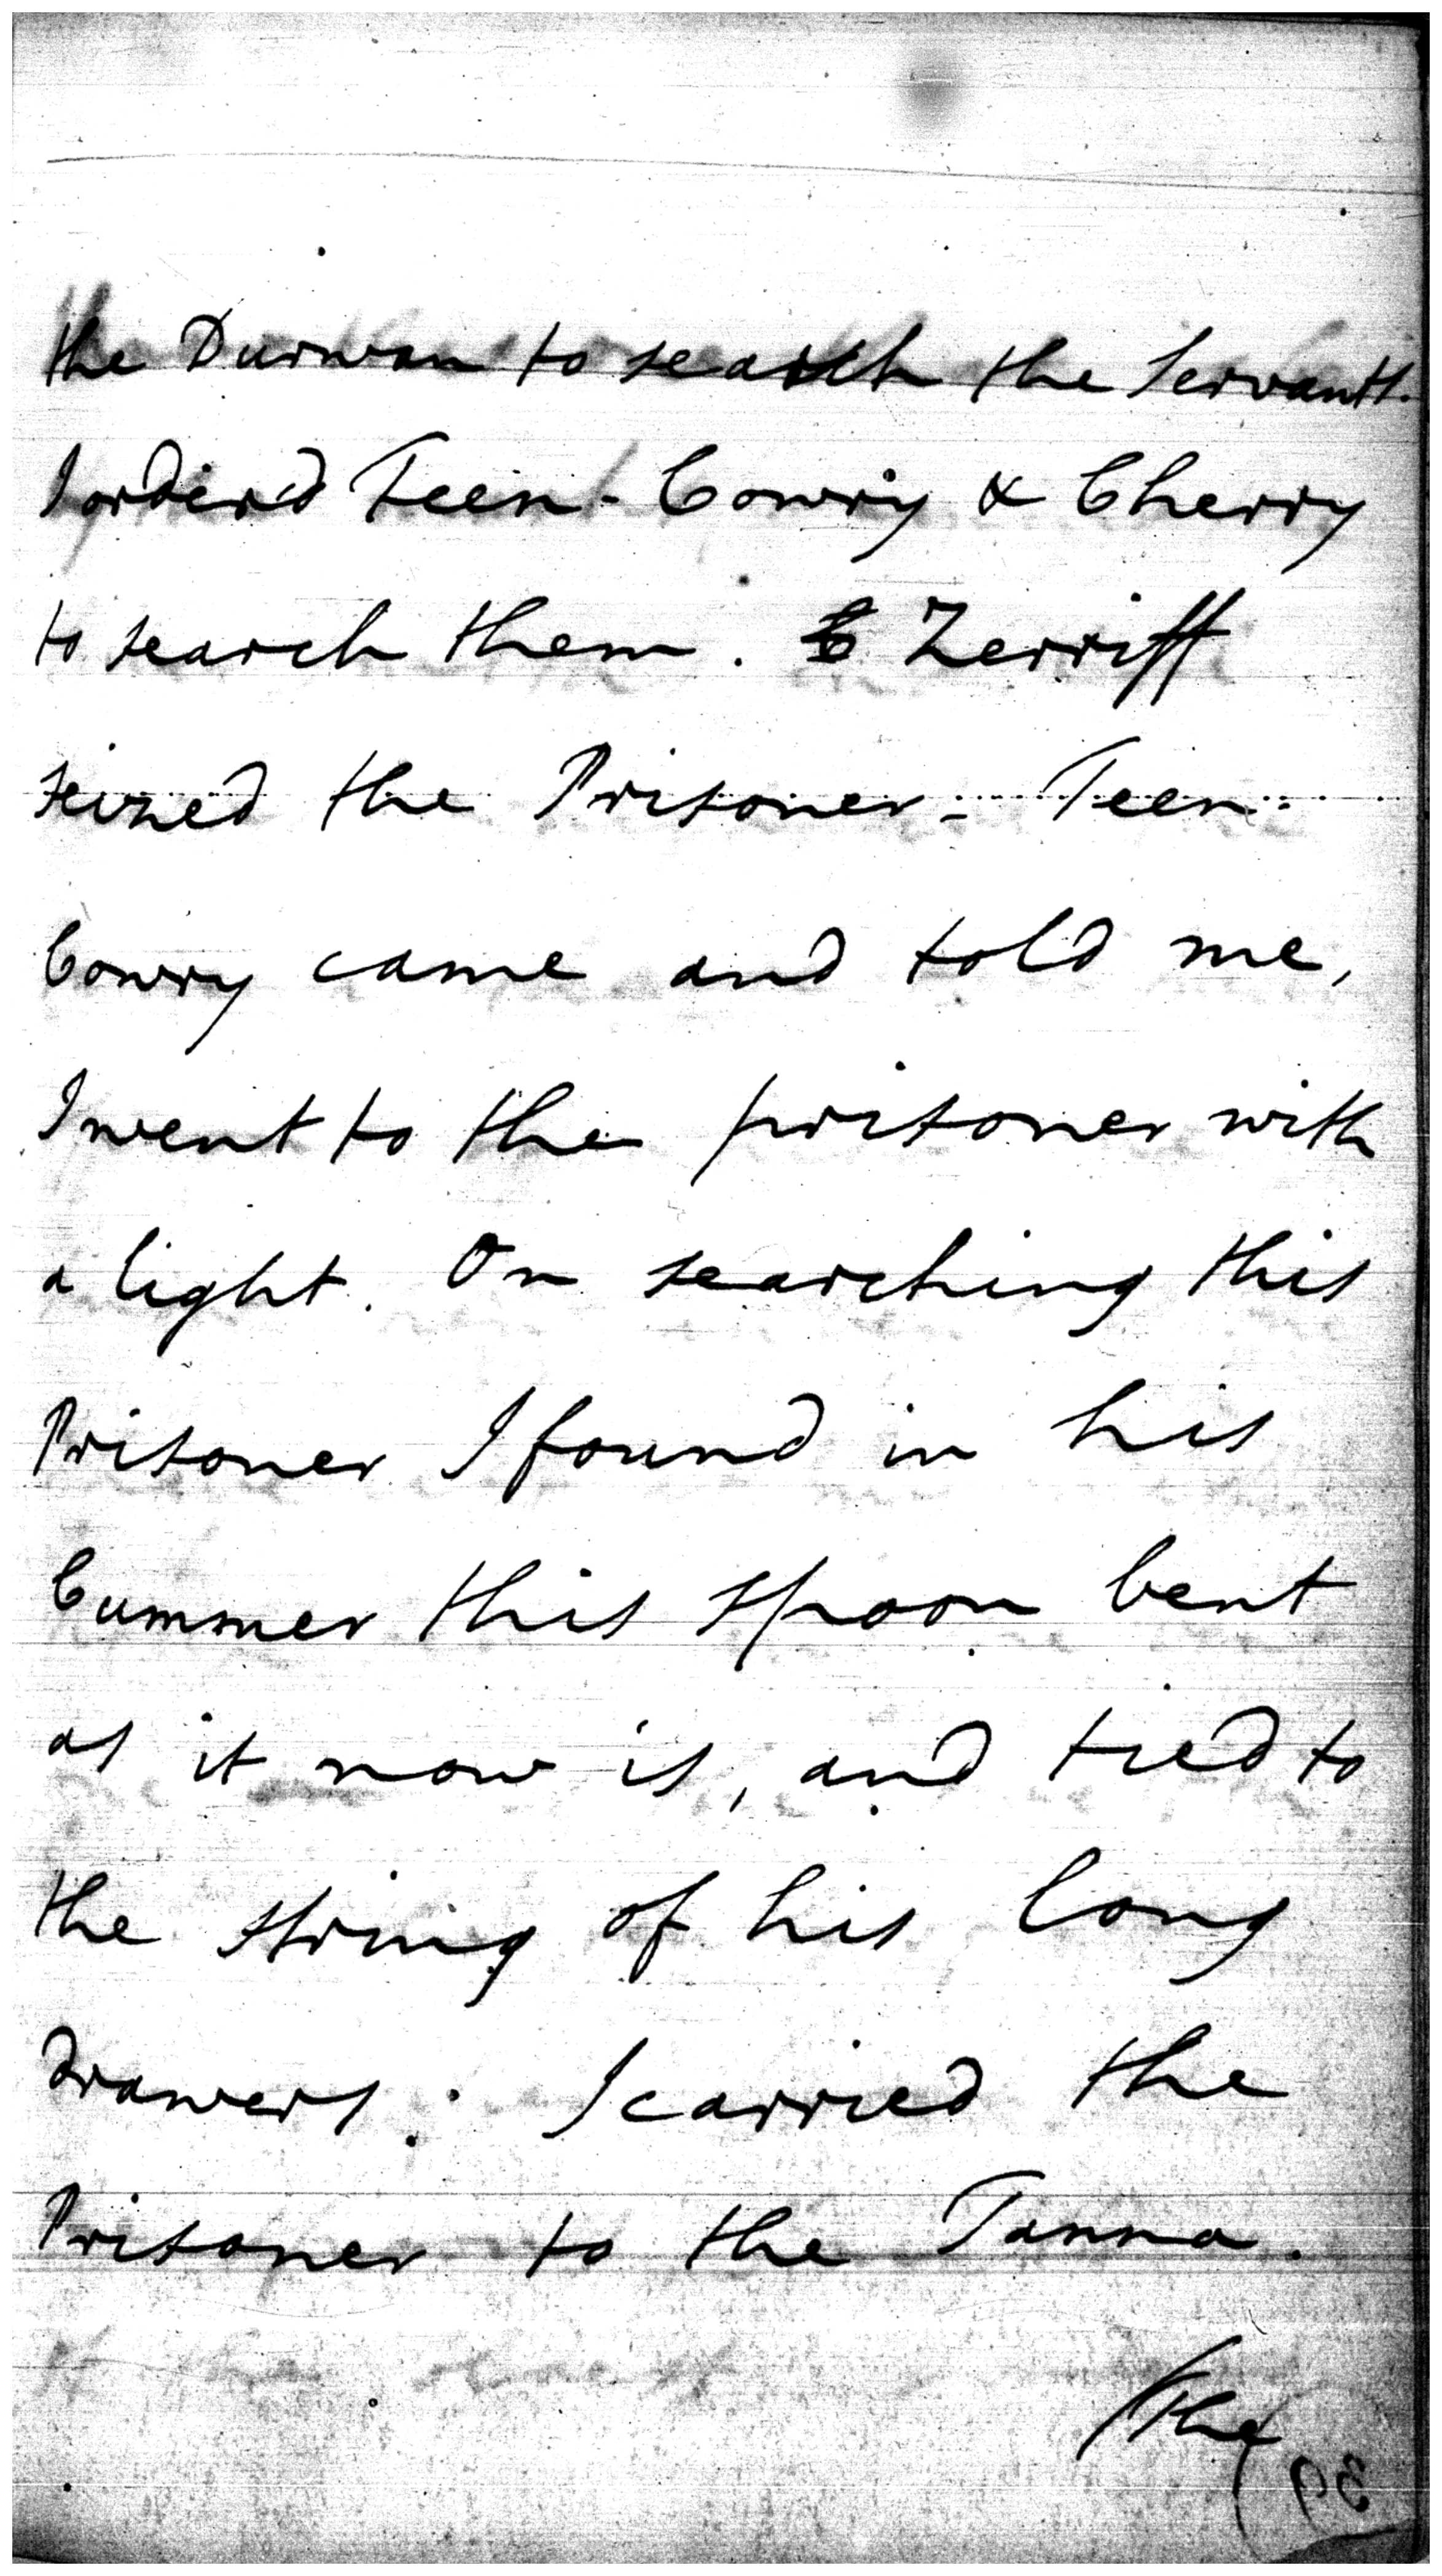 the Durwan to search the Servants.
I order'd Teen-Cowry & Cherry
to search them. Zerriff
seized the Prisoner - Teen-
Cowry came and told me,
I went to the prisoner with
a light. On searching this
Prisoner I found in his
Cummer this spoon bent
as it now is, and tied to
the string of his long
drawers. I carried the
Prisoner to the Tanna.
The